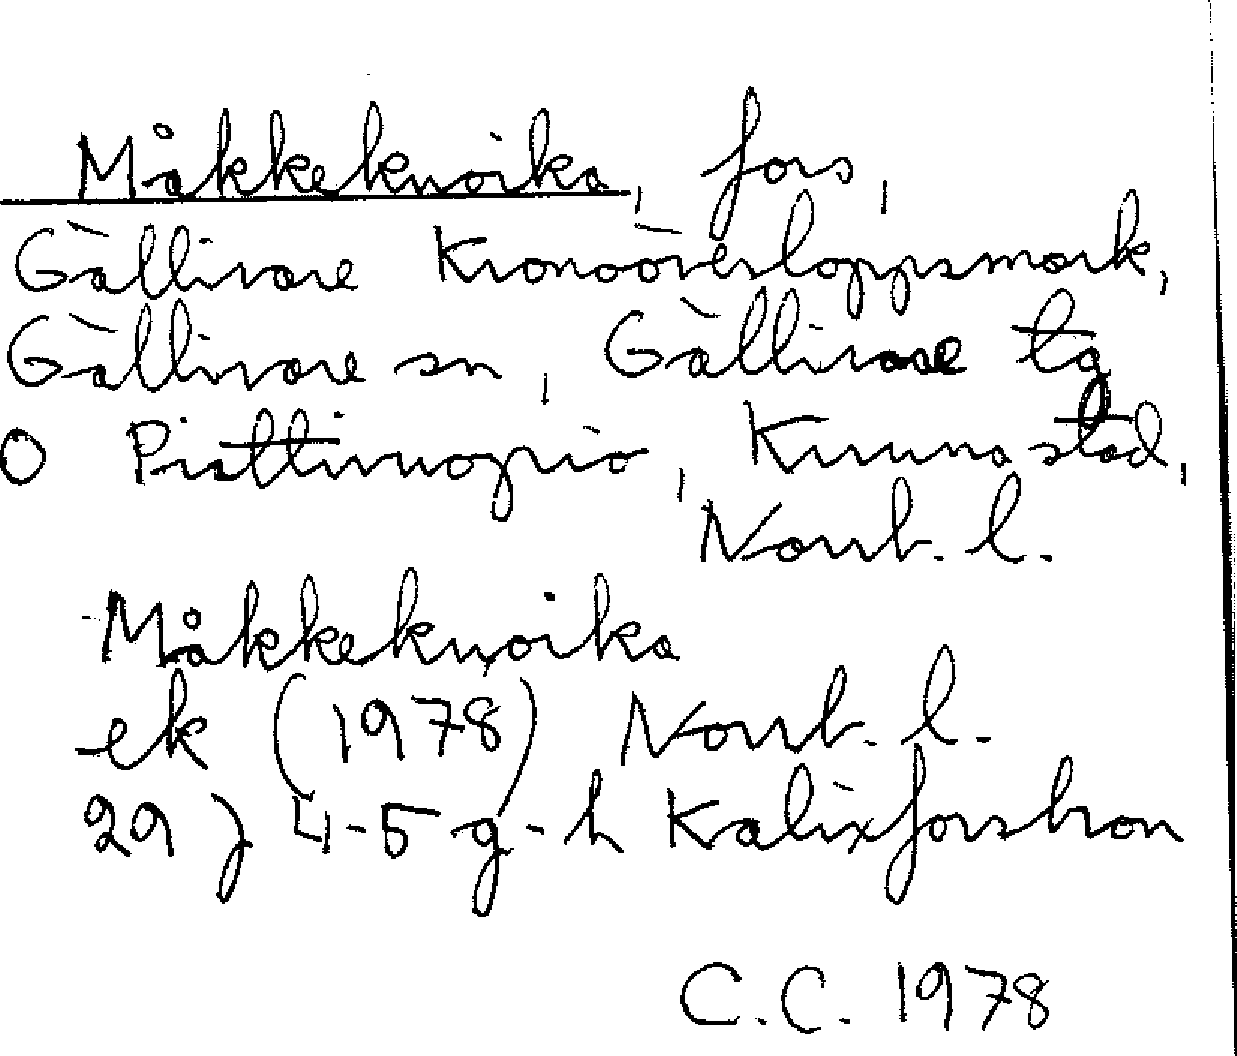 Måkkekuoika, fors,
Gällivare Kronoöverloppsmark,
Gällivare sn, Gällivare tg
o Pisttivuopio, Kiruna stad,
Norrb. l.
Måkkekuoika
ek (1978) Norrb. l.
29 J 4-5 g-h Kalixforsbron
C.C. 1978